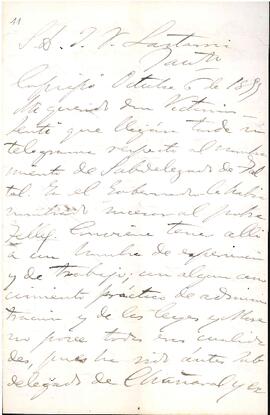 11
S. D. J. V. Lastarria
Santo
Copiapó Octubre 6 de 1899
Mi querido don Victorino
Sentí que llegara tarde mi
telegrama respecto al nombra
miento de Subdelegado de Tal
tal. En el Gobernador le había
Conviene tener allí
a un hombre de esperiencia
y de trabajo; con algun cono
cimiento práctico de adminis
tracion y de las leyes y Mora
no posee todas esas cualida
des, pues ha sido antes sub
delegado de Chañaral y ex